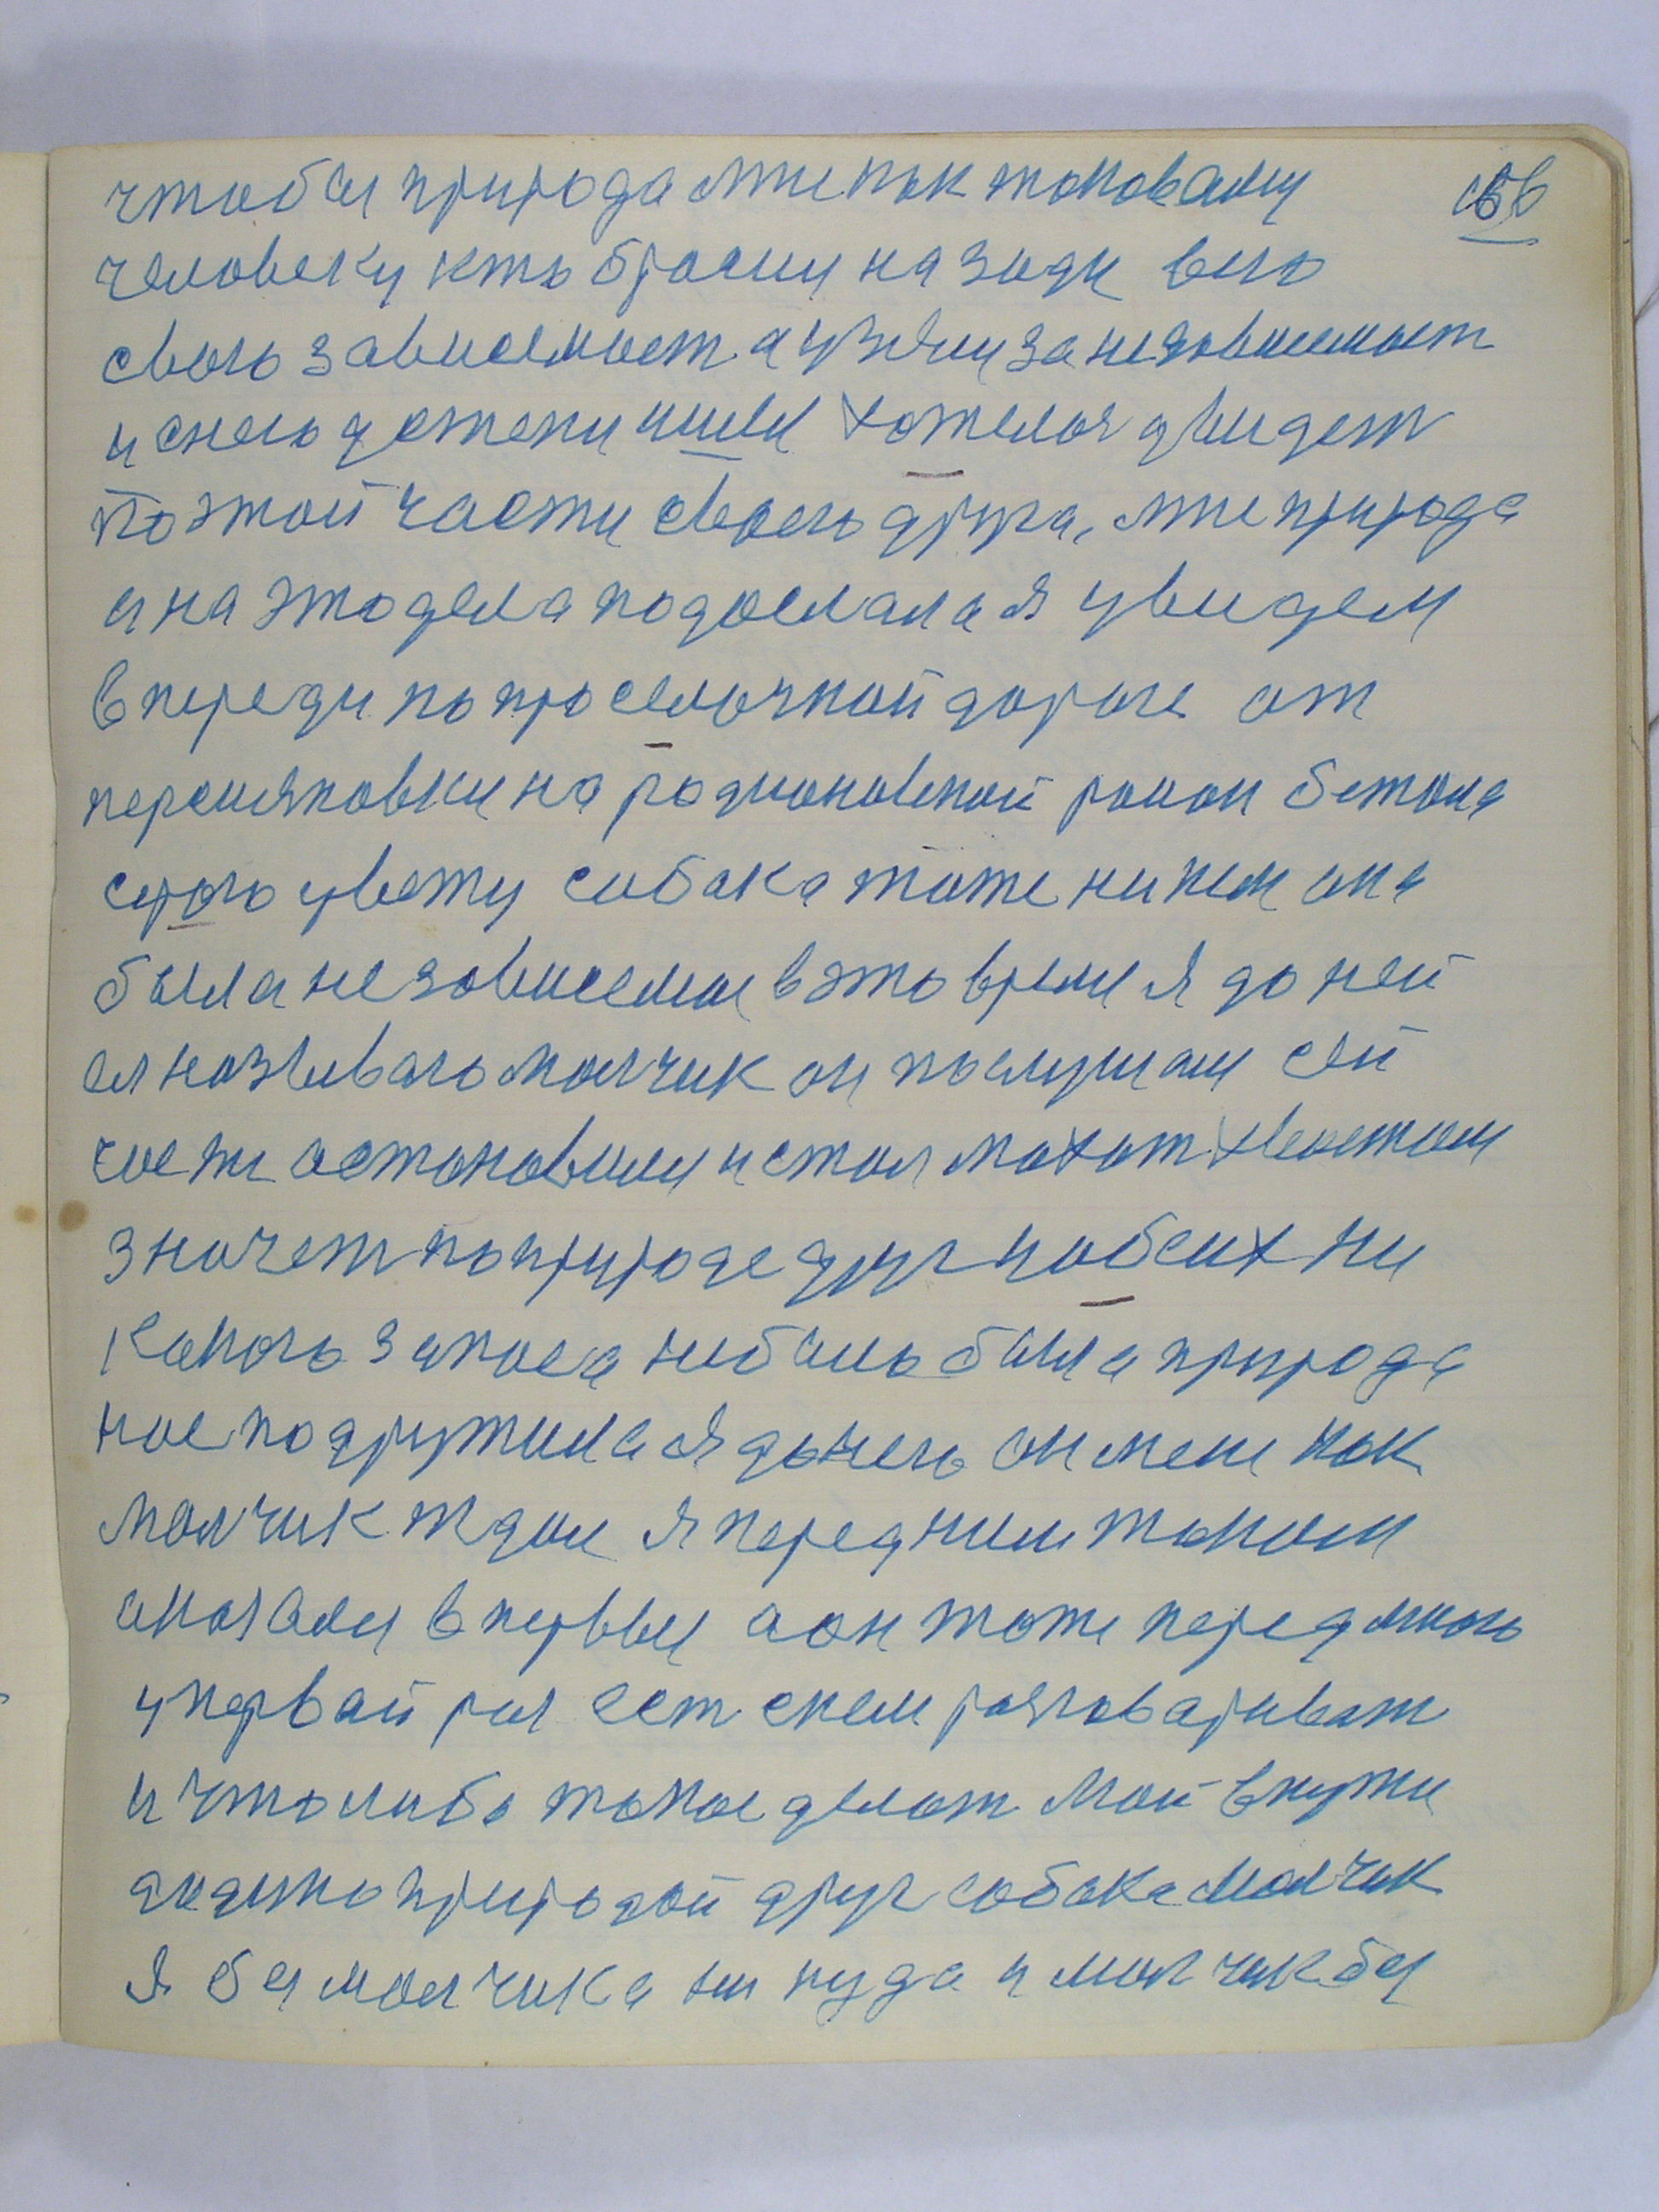 чтобы природа мне как таковаму 166
человеку кто бросил на зади всю
свою зависемост а узяли за независемаст
и снею у степи ишел хотелоя двидет
По этой части своего друга, мне природа
и на это дела подослала я увидем
в переди по проселочной дороге от
персияновки на родионовской район бежала
серого цвету собака тоже ни кем она
была независемам в это время я до ней
ея називаю малчик он послушал сей
час же астановился и стал махат хвостом
значет по природе друг и обеих ни
какого запаса небыло была природа
нас подружила я до него он мене как
малчик ждал я перед ним таким
оказался в первый а он тоже перед мною
у первай раз ест скем разговариват
и что либо такое делат мой в пути
природой друг собака малчик
я без малчика ни куда и малчик без